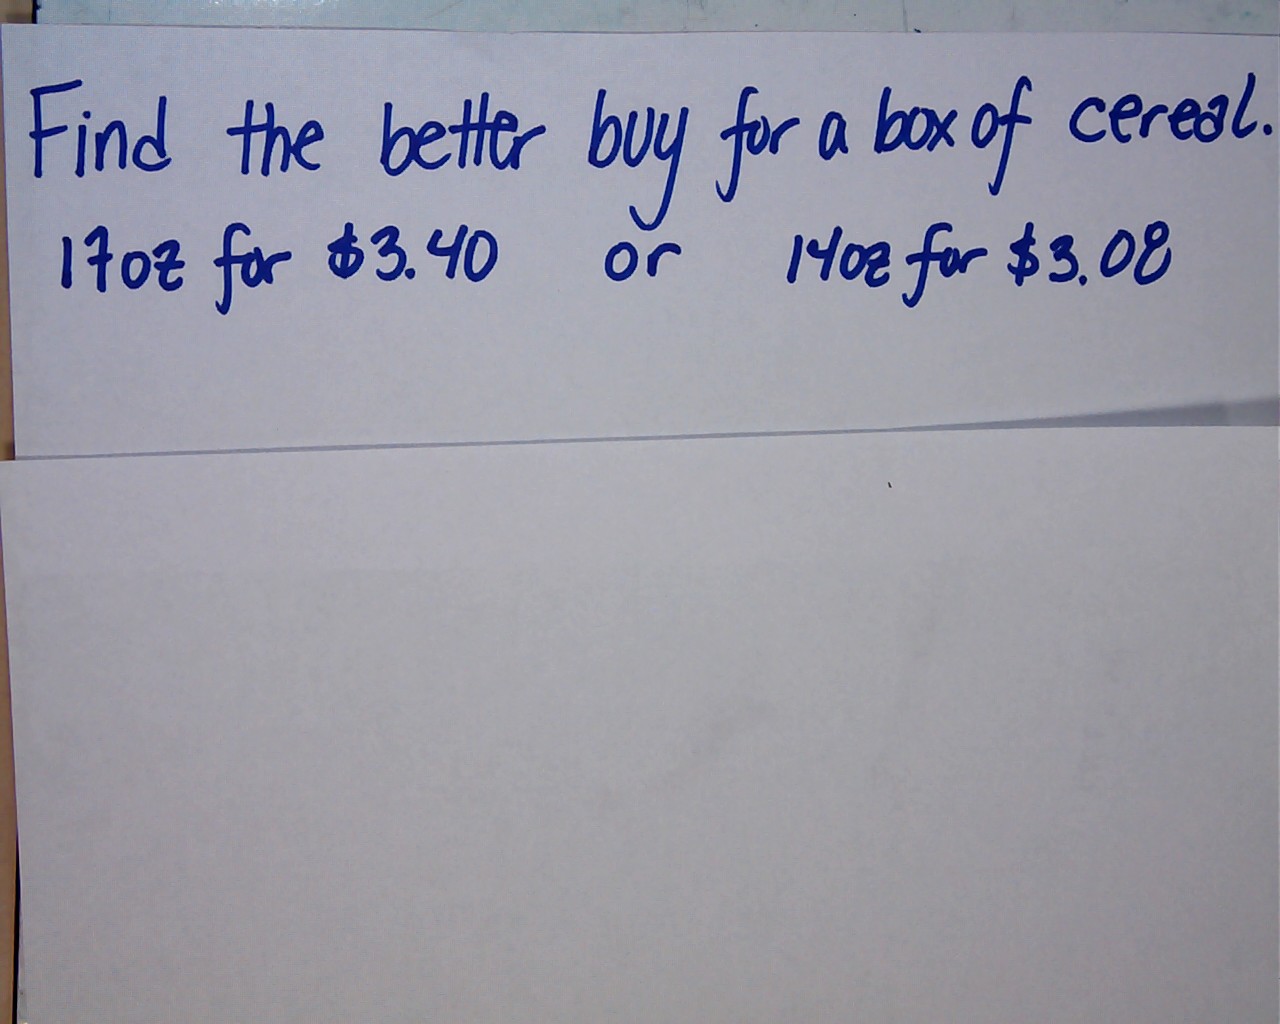 Find the better buy for a box of cereal.
17oz for $3.40 or 14oz for $3.08